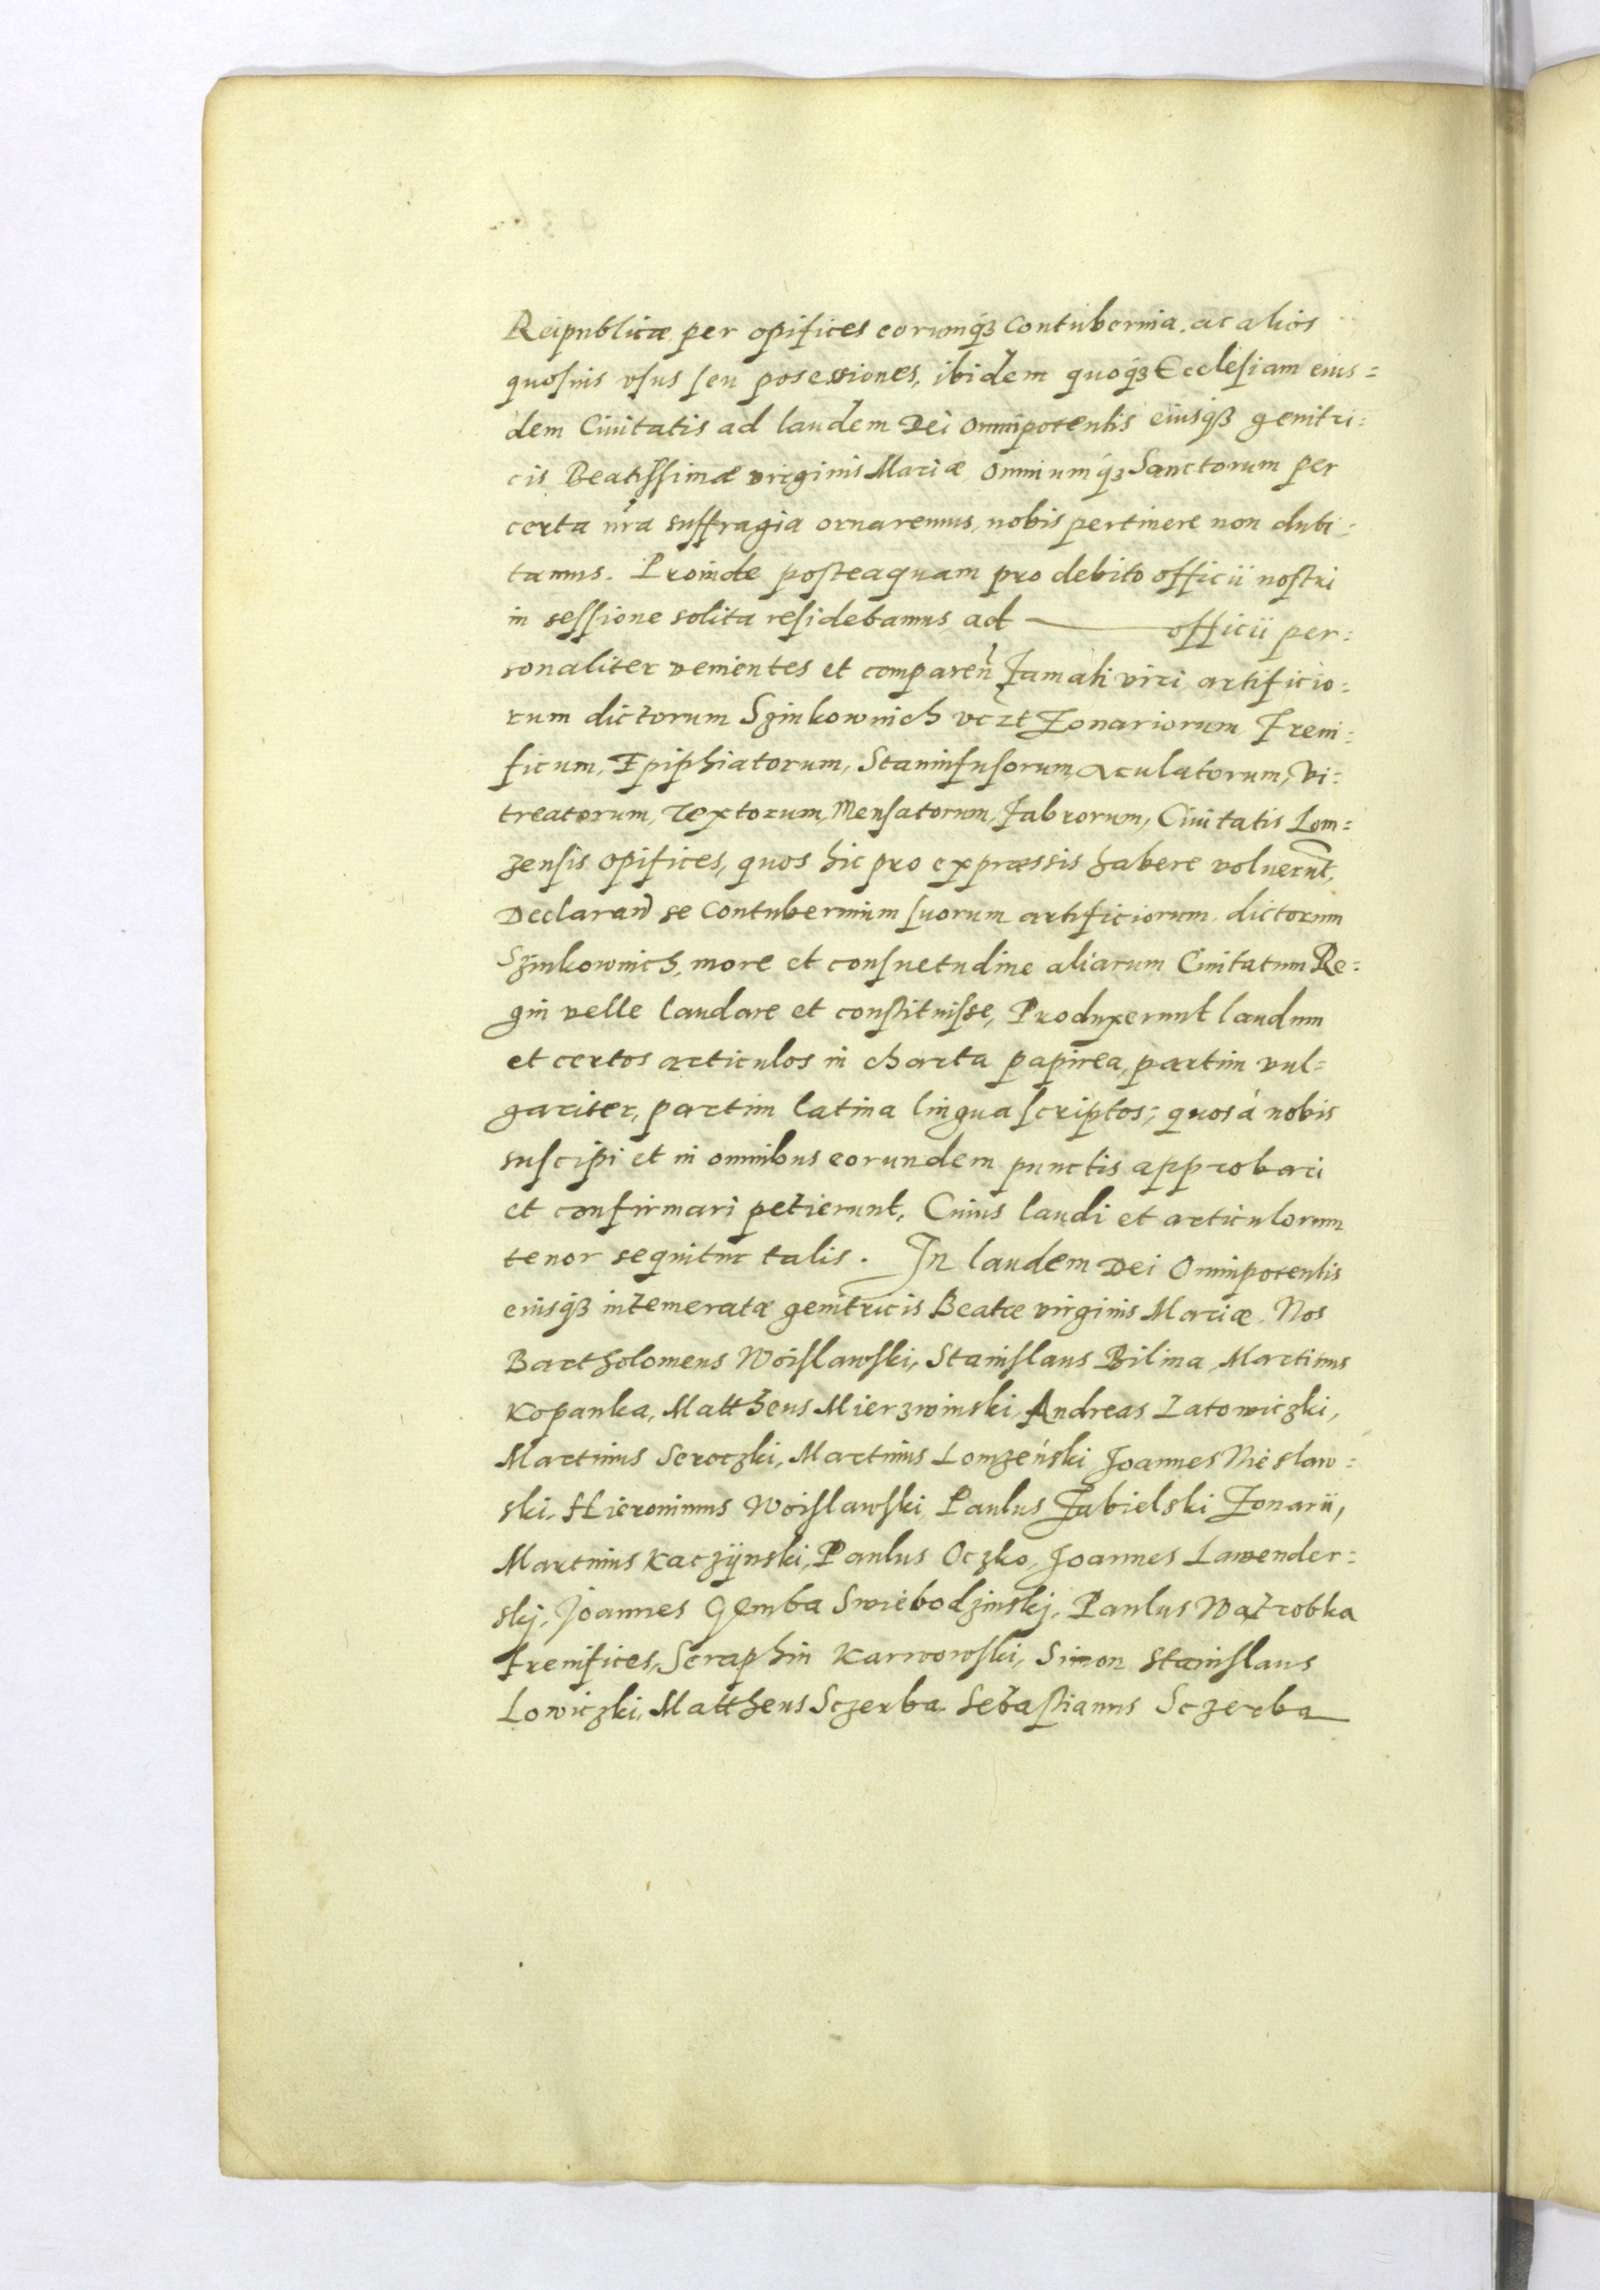 Reipublicæ per opifices eorumq́ꝫ Contubernia, ac alios
quosuis vsus seu posessiones, ibidem quoq́ꝫ Ecclesiam eius=
dem Ciuitatis ad laudem Dei Omnipotentis eiusq́ꝫ genitri=
cis Beatissimæ virginis Mariæ, Omniumq́ꝫ Sanctorum per
certa nr̃a suffragia ornaremus, nobis pertinere non dubi=
tamus. Proinde posteaquam pro debito officii nostri
in sessione solita residebamus, ad — officii per=
sonaliter venientes et comparen̄ Famati viri, artificio=
rum dictorum Szinkownich vczt Zonariorum Freni=
ficum, Epiphiatorum, Stannifusorum, Aculatorum, Vi=
treatorum, Textorum, Mensatorum, Fabrorum, Ciuitatis Lom=
zensis opifices, quos hic pro expræssis habere voluerūt,
Declaran̄ se Contubernium suorum artificiorum, dictorum
Szinkownich, more et consuetudine aliarum Ciuitatum Re=
gni velle laudare et constituisse, Produxerunt laudum
et certos articulos in charta papirea, partim vul=
gariter, partim latina lingua scriptos; quos á nobis
suscipi et in omnibus eorundem punctis approbari
et confirmari petierunt, Cuius laudi et articulorum
tenor sequitur talis. In laudem Dei Omnipotentis
eiusq́ꝫ intemeratæ genitricis Beatæ virginis Mariæ. Nos
Bartholomeus Woislawski, Stanislaus Bilina, Martinus
Kopanka, Mattheus Mierzwinski, Andreas Latowiczki,
Martinus Seroczki, Martinus Lomzeński, Joannes Nieslaw=
ski, Hieronimus Woislawski, Paulus Zabielski Zonarii,
Martinus Kaczÿnski, Paulus Oczko, Joannes Lawender=
skj, Joannes Gemba Swiebodzinskj, Paulus Wątrobka
Frenifices, Seraphin Karwowski, Simon Stanislaus
Lowiczki, Mattheus Sczerba, Sebastianus Sczerba